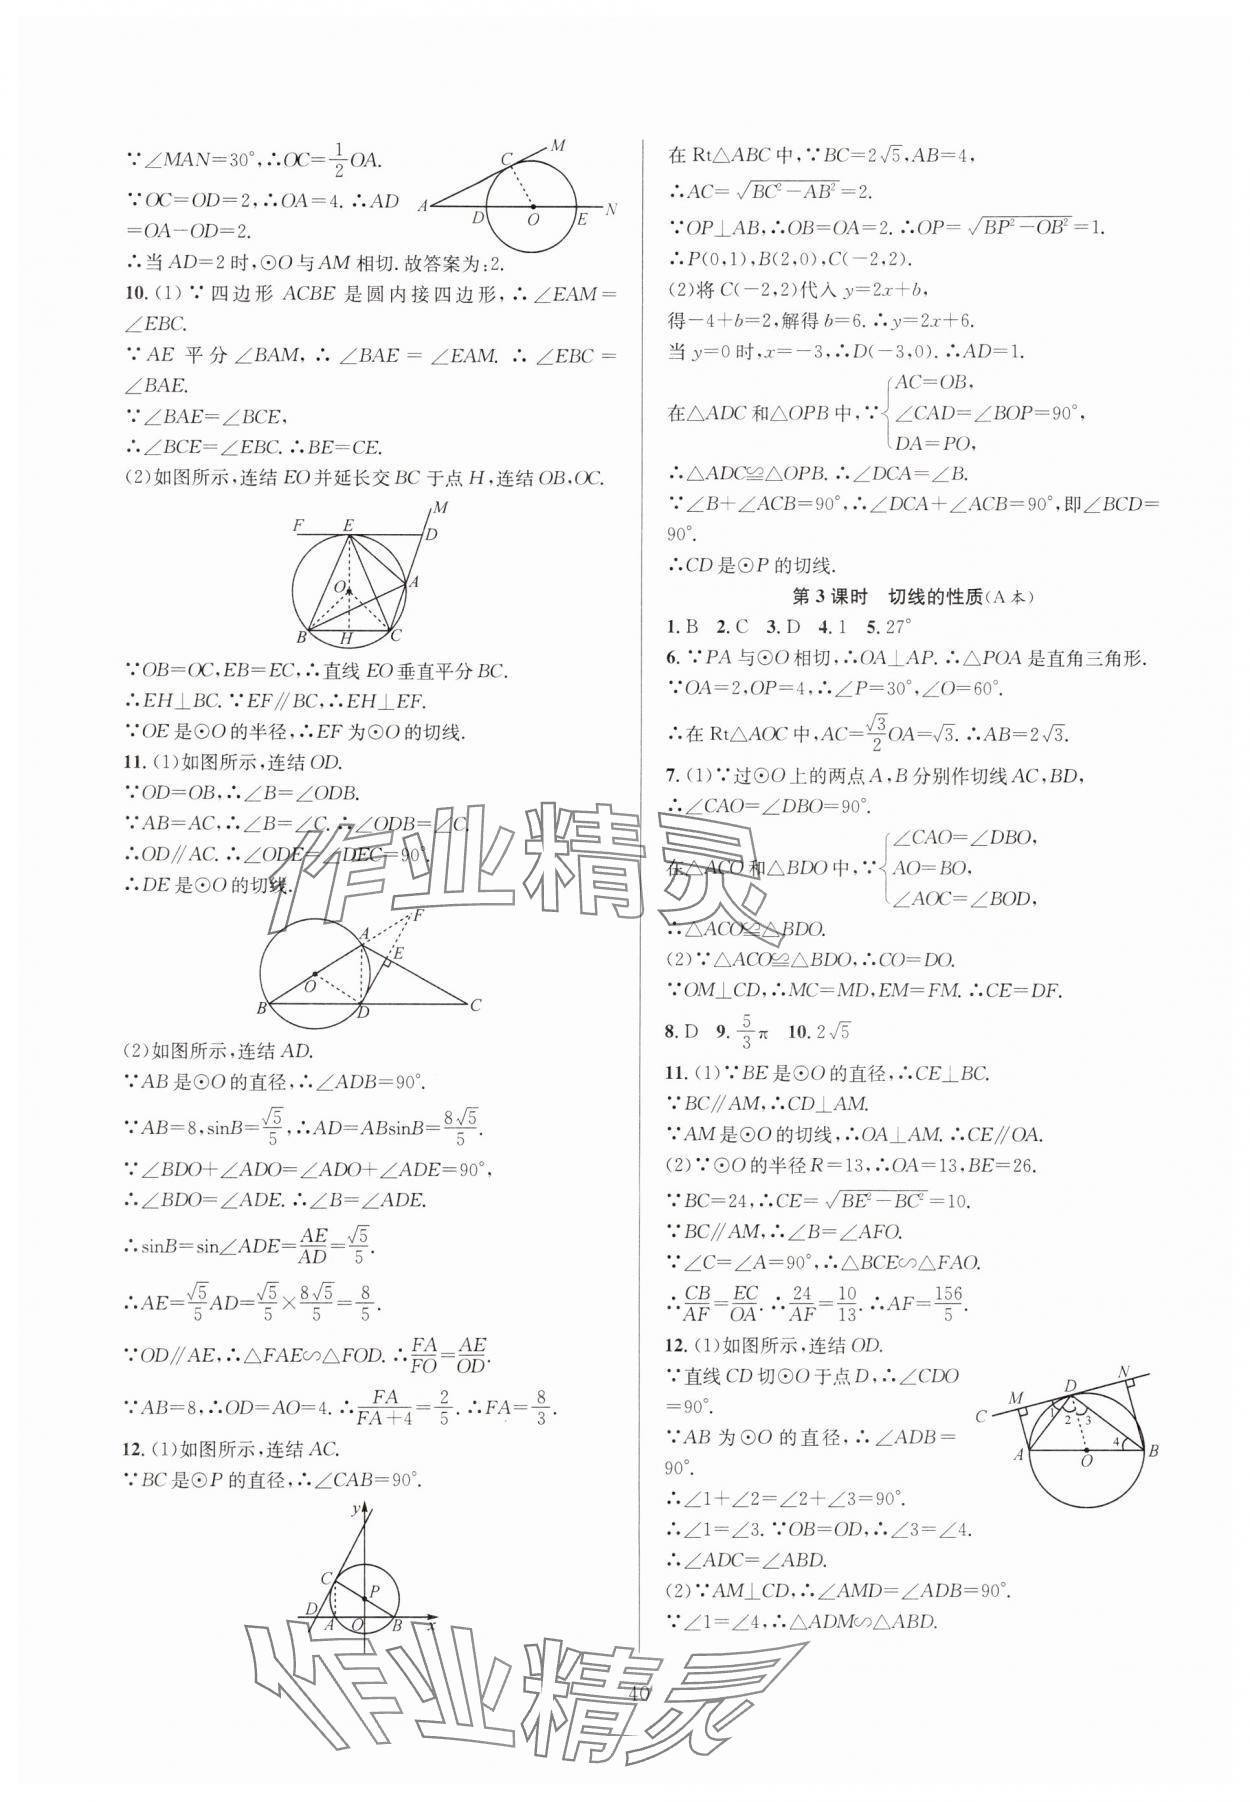 ∵∠MAN=30°,∴OC=1/2OA.
∵OC=OD=2,∴OA=4.∴AD
=OA-OD=2.
∴当AD=2时,⊙O与AM相切.故答案为:2.
M
C
A
D
O
E
N
10.(1)∵四边形ACBE是圆内接四边形,∴∠EAM=
∠EBC.
∵AE平分∠BAM,∴∠BAE=∠EAM.∴∠EBC=
∠BAE.
∵∠BAE=∠BCE,
∴∠BCE=∠EBC.∴BE=CE.
(2)如图所示,连结EO并延长交BC于点H,连结OB,OC.
F
E
M
D
A
O
B
H
C
∵OB=OC,EB=EC,∴直线EO垂直平分BC.
∴EH⊥BC.∵EF∥BC,∴EH⊥EF.
∵OE是⊙O的半径,∴EF为⊙O的切线.
11.(1)如图所示,连结OD.
∵OD=OB,∴∠B=∠ODB.
∵AB=AC,∴∠B=∠C.∴∠ODB=∠C.
∴OD∥AC.∴∠ODE=∠DEC=90°.
∴DE是⊙O的切线.
F
A
E
O
B
D
C
(2)如图所示,连结AD.
∵AB是⊙O的直径,∴∠ADB=90°.
∵AB=8,sinB=√5/5,∴AD=ABsinB=8√5/5.
∵∠BDO+∠ADO=∠ADO+∠ADE=90°,
∴∠BDO=∠ADE.∴∠B=∠ADE.
∴sinB=sin∠ADE=AE/AD=√5/5.
∴AE=√5/5AD=√5/5×8√5/5=8/5.
∵OD∥AE,∴△FAE∽△FOD.∴FA/FO=AE/OD.
∵AB=8,∴OD=AO=4.∴FA/FA+4=2/5.∴FA=8/3.
12.(1)如图所示,连结AC.
∵BC是⊙P的直径,∴∠CAB=90°.
y
C
P
D
A
O
B
x
在Rt△ABC中,∵BC=2√5,AB=4,
∴AC=√BC²-AB²=2.
∵OP⊥AB,∴OB=OA=2.∴OP=√BP²-OB²=1.
∴P(0,1),B(2,0),C(-2,2).
(2)将C(-2,2)代入y=2x+b,
得-4+b=2,解得b=6.∴y=2x+6.
当y=0时,x=-3,∴D(-3,0).∴AD=1.
AC=OB,
在△ADC和△OPB中,∵{∠CAD=∠BOP=90°,
DA=PO,
∴△ADC≌△OPB.∴∠DCA=∠B.
∵∠B+∠ACB=90°,∴∠DCA+∠ACB=90°,即∠BCD=
90°.
∴CD是⊙P的切线.
第3课时 切线的性质(A本)
1.B 2.C 3.D 4.1 5.27°
6.∵PA与⊙O相切,∴OA⊥AP.∴△POA是直角三角形.
∵OA=2,OP=4,∴∠P=30°,∠O=60°.
∴在Rt△AOC中,AC=√3/2OA=√3.∴AB=2√3.
7.(1)∵过⊙O上的两点A,B分别作切线AC,BD,
∴∠CAO=∠DBO=90°.
∠CAO=∠DBO,
在△ACO和△BDO中,∵{AO=BO,
∠AOC=∠BOD,
∴△ACO≌△BDO.
(2)∵△ACO≌△BDO,∴CO=DO.
∵OM⊥CD,∴MC=MD,EM=FM.∴CE=DF.
8.D 9.5/3π 10.2√5
11.(1)∵BE是⊙O的直径,∴CE⊥BC.
∵BC∥AM,∴CD⊥AM.
∵AM是⊙O的切线,∴OA⊥AM.∴CE∥OA.
(2)∵⊙O的半径R=13,∴OA=13,BE=26.
∵BC=24,∴CE=√BE²-BC²=10.
∵BC∥AM,∴∠B=∠AFO.
∵∠C=∠A=90°,∴△BCE∽△FAO.
∴CB/AF=EC/OA.∴24/AF=10/13.∴AF=156/5.
12.(1)如图所示,连结OD.
∵直线CD切⊙O于点D,∴∠CDO
=90°.
∵AB为⊙O的直径,∴∠ADB=
90°.
∴∠1+∠2=∠2+∠3=90°.
∴∠1=∠3.∵OB=OD,∴∠3=∠4.
∴∠ADC=∠ABD.
(2)∵AM⊥CD,∴∠AMD=∠ADB=90°.
∵∠1=∠4,∴△ADM∽△ABD.
N
D
M
C
1
2
3
4
A
O
B
作业精灵
作业精灵
40